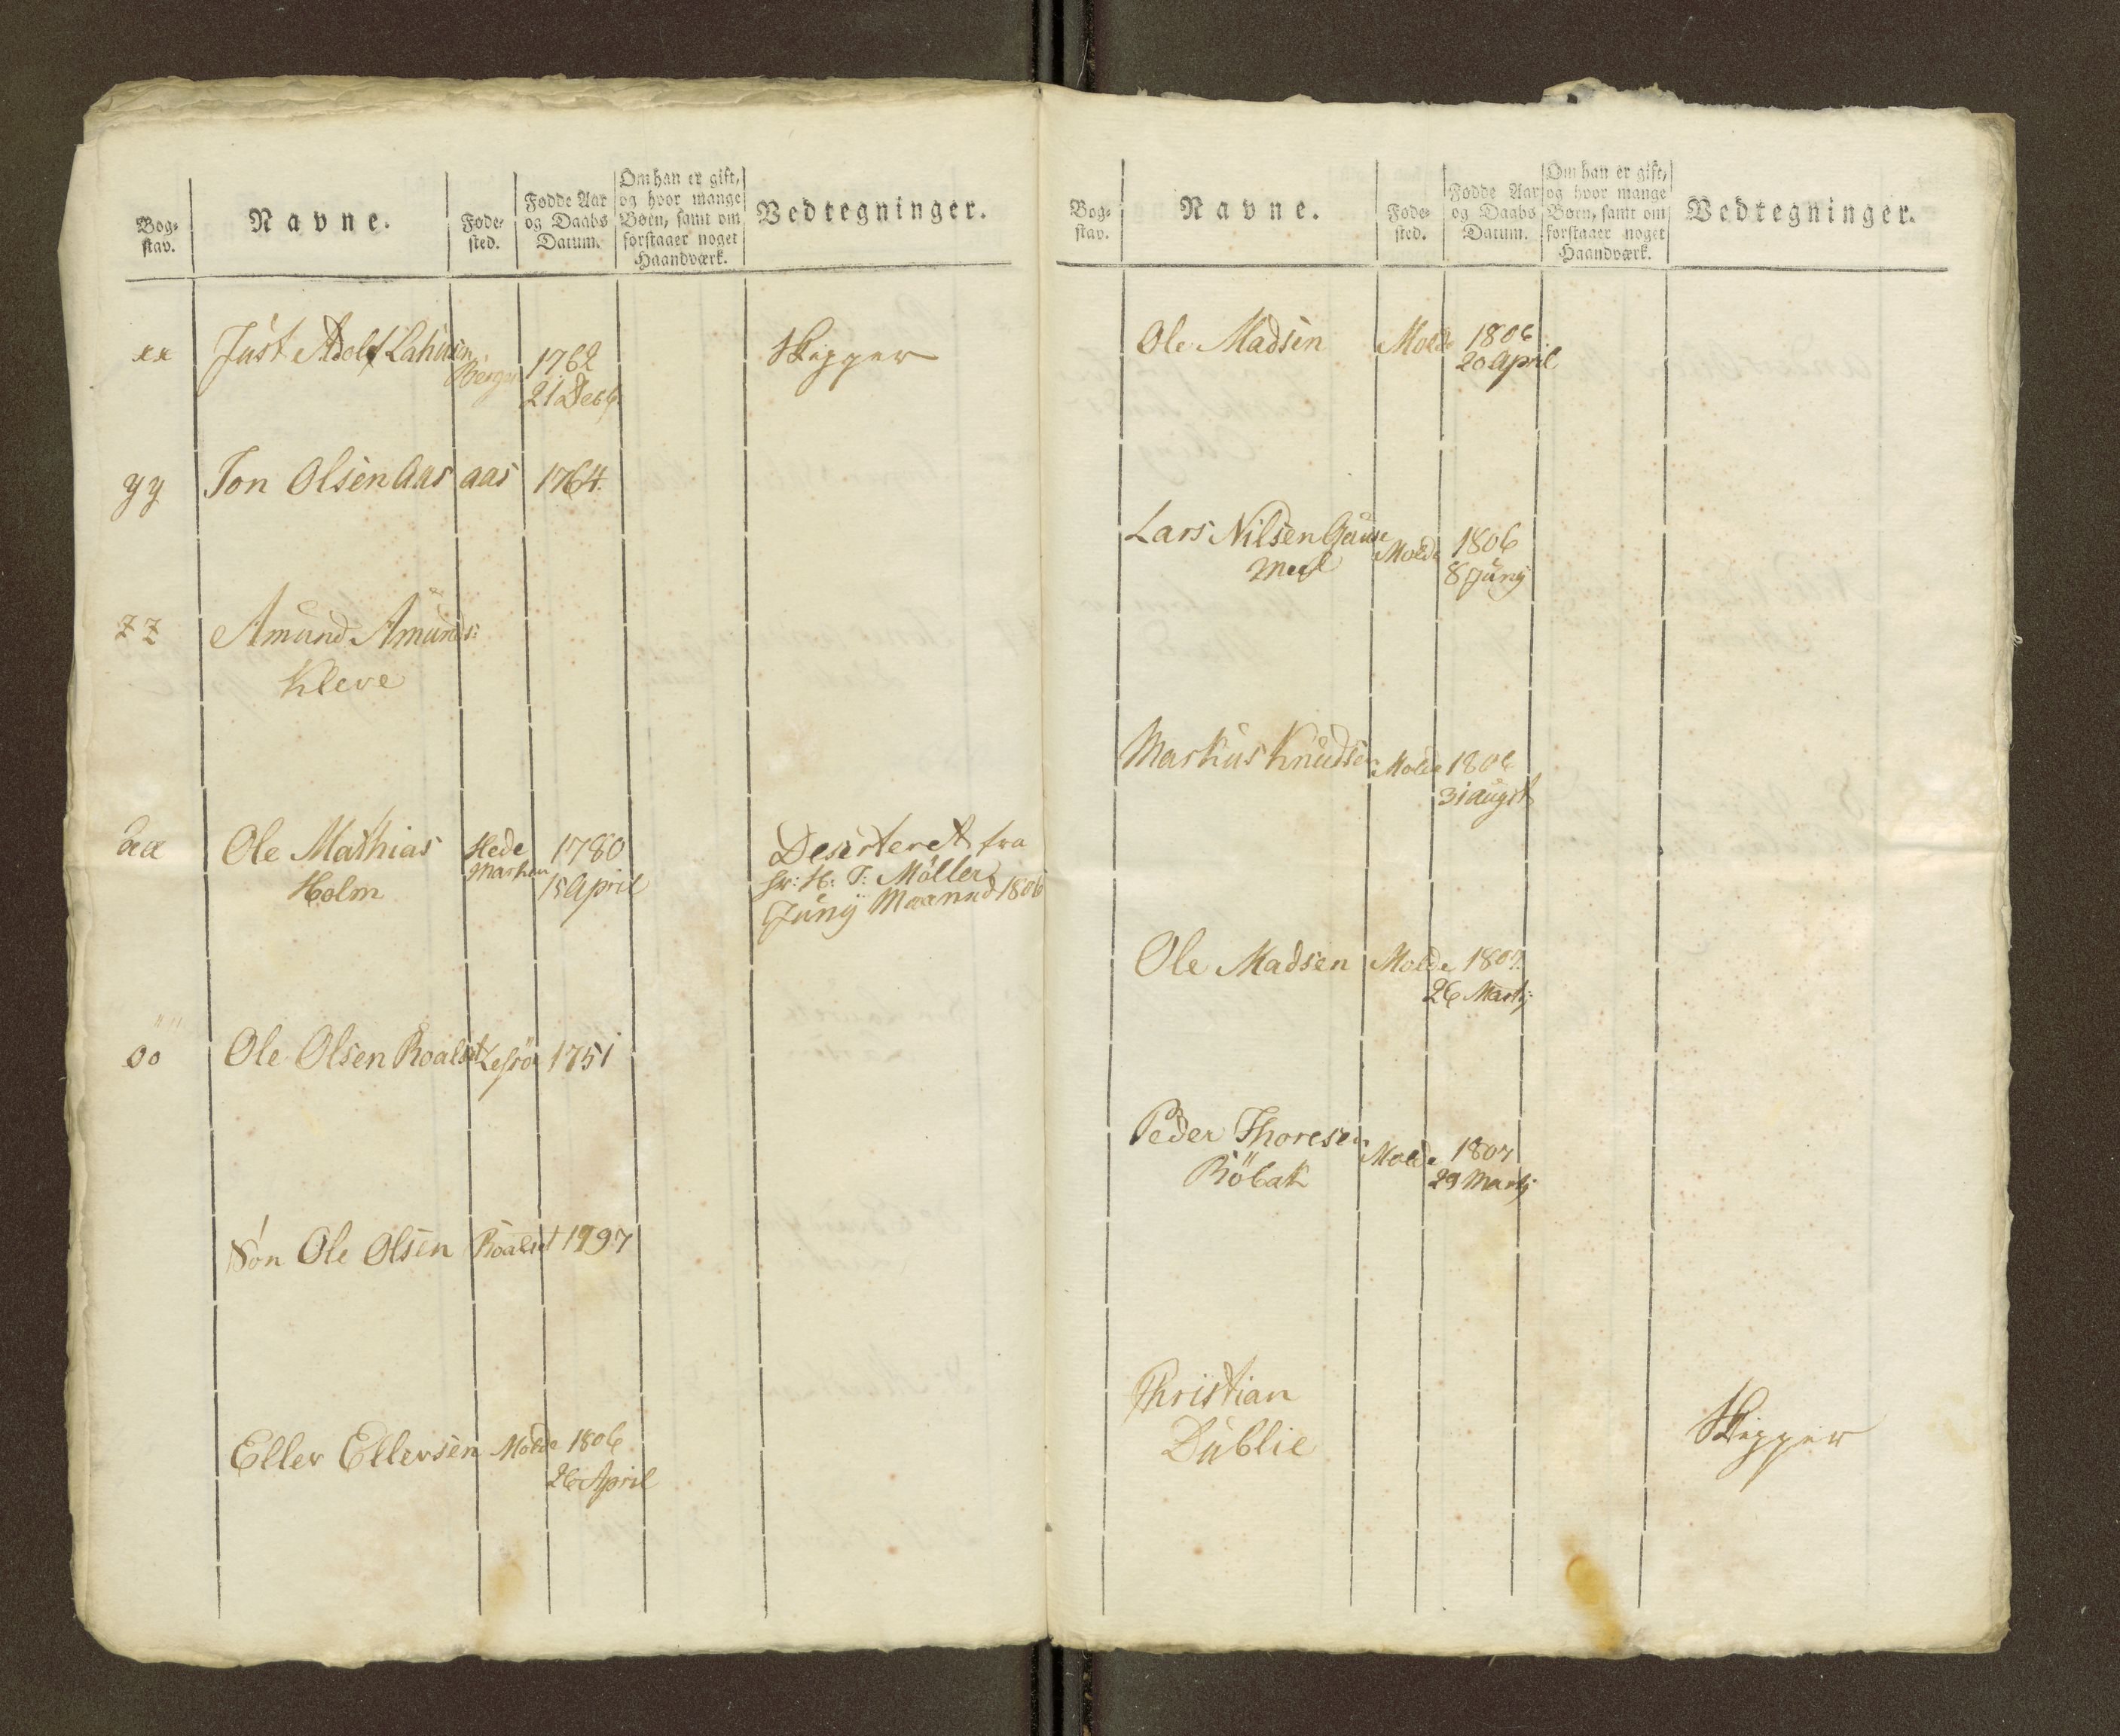 Bog-
stav.
Navne.
Føde-
sted.
Fødde Aar
og Daabs
Datum.
Om han er gift,
og hvor mange
Børn, samt om
forstaaer noget
Haandværk.
Vedtegninger.
xx Just Adolf Lahusen Bergen 1762 Skipper
21 Decb.
yy Jon Olsen Aas aas 1764
zz Amund Amunds:
Kleve
Ole Mathias Hede 1780 Deserteret fra
Holm Marken 15 April H: T: Møller
Junij Maanned 1806
öö Ole Olsen Roalset 1751
Søn Ole Olsen Roalset 1797
Eller Ellersen Molde 1806
26 April
Bog-
stav.
Navne.
Føde-
sted.
Fødde Aar
og Daabs
Datum.
Om han er gift,
og hvor mange
Børn, samt om
forstaaer noget
Haandværk.
Vedtegninger.
Ole Madsen Molde 1806
20 April
Lars Nilsen Molde 1806
8 Junij
Markus Knudsen Molde 1806
31 augst
Ole Madsen Molde 1807
26 Martij
Peder Thoresen Molde 1807
Röbak 29 Martij
Christian
Dublie Skipper